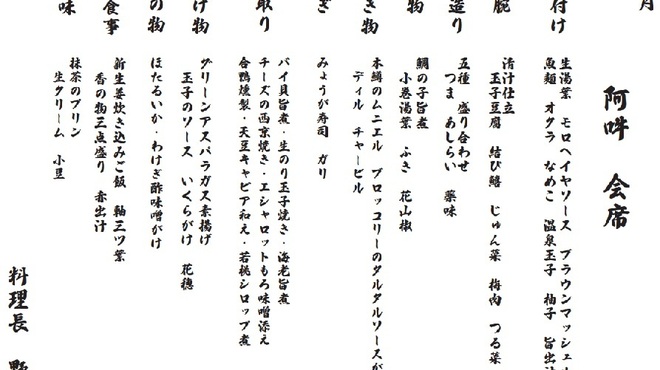 月
阿吽 会席
付け
生湯葉 モロヘイヤソース ブラウンマッシュ
魚麺 オクラ なめこ 温泉玉子 柚子 旨出汁
椀
清汁仕立
玉子豆腐 結び鱚 じゅん菜 梅肉 つる菜
造り
五種 盛り合わせ
つま あしらい 薬味
物
鯛の子旨煮
小巻湯葉 ふき 花山椒
き物
本鱒のムニエル ブロッコリーのタルタルソースが
ディル チャービル
ぎ
みょうが寿司 ガリ
取り
バイ貝旨煮・生のり玉子焼き・海老旨煮
チーズの西京焼き・エシャロットもろ味噌添え
合鴨燻製・天豆キャビア和え・若桃シロップ煮
け物
グリーンアスパラガス素揚げ
玉子のソース いくらがけ 花穂
の物
ほたるいか・わけぎ酢味噌がけ
食事
新生姜炊き込みご飯 軸三ツ葉
香の物三点盛り 赤出汁
味
抹茶のプリン
生クリーム 小豆
料理長 野